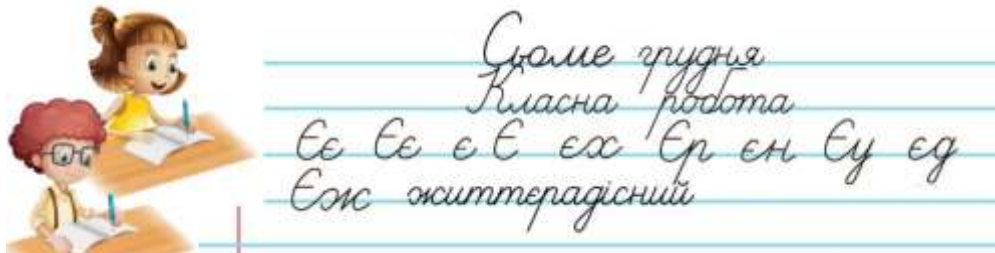 Сьоме грудня
Класна робота
Єє Єє є Є єх Єр єн Єу єд
Єж життєрадісний